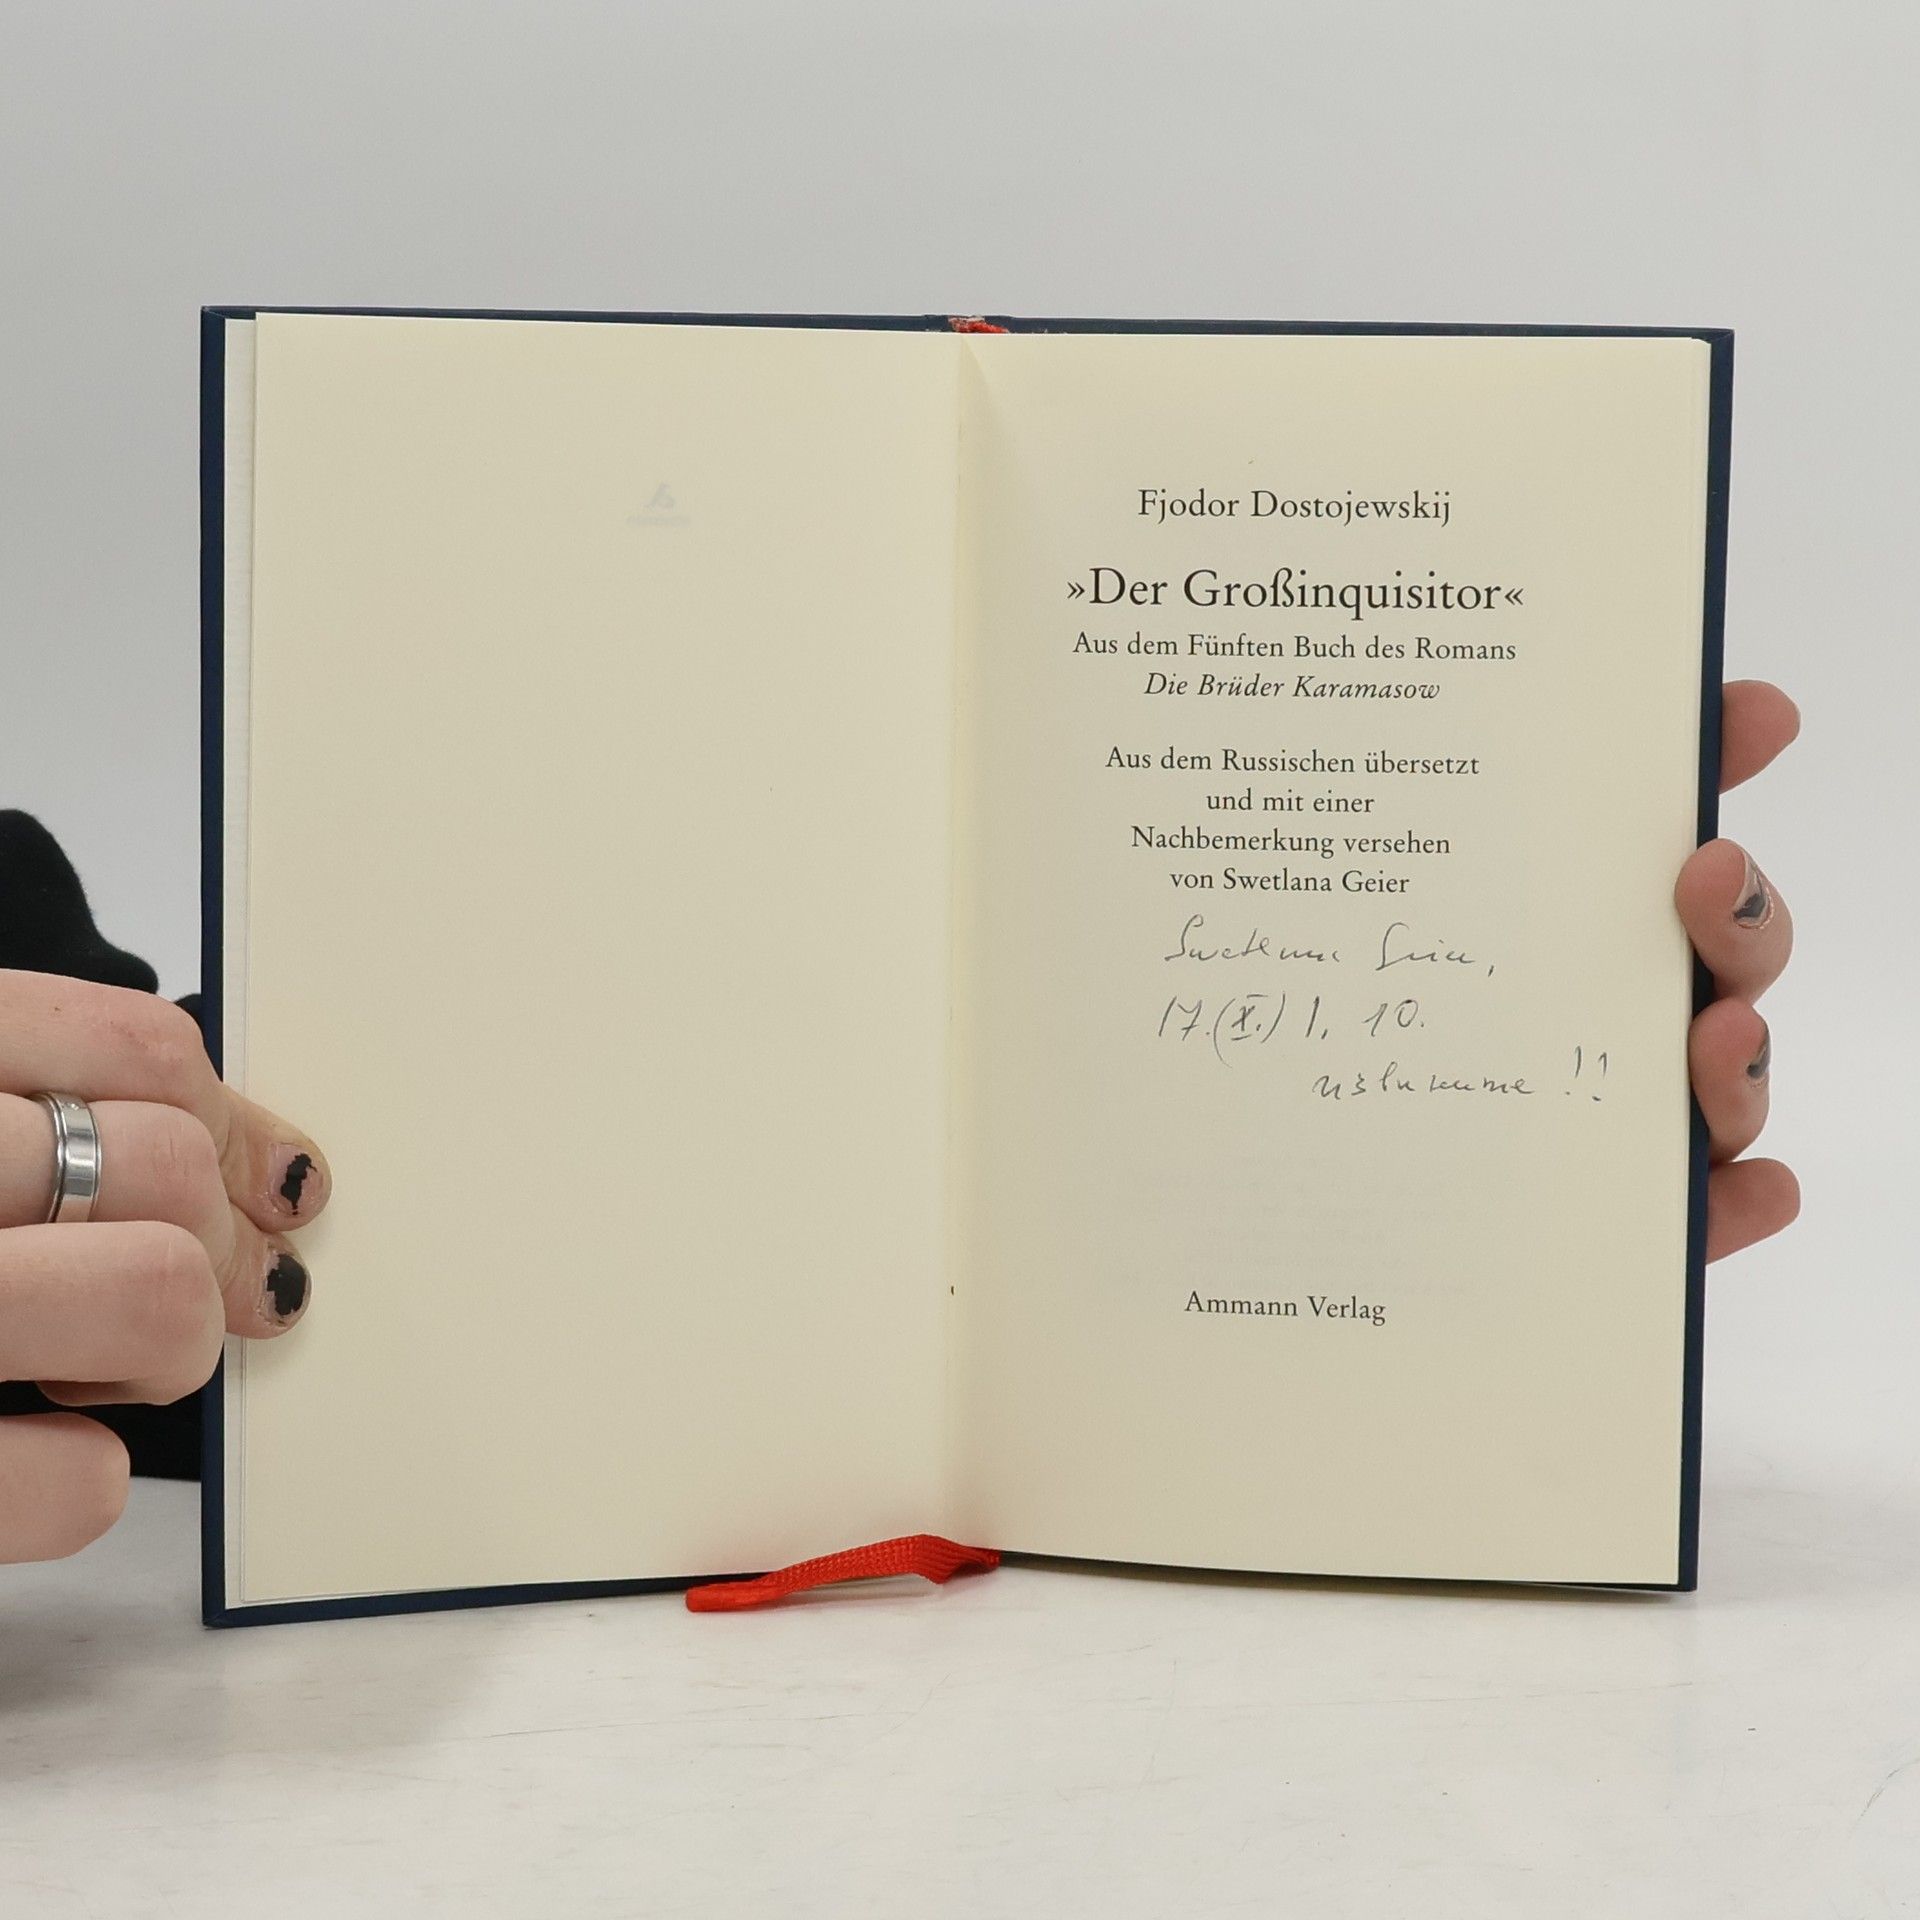 Fjodor Dostojewskij
»Der Großinquisitor«
Aus dem Fünften Buch des Romans
Die Brüder Karamasow
Aus dem Russischen übersetzt
und mit einer
Nachbemerkung versehen
von Swetlana Geier
Swetlana Geier,
17.(X.) 1. 10.
!!
Ammann Verlag